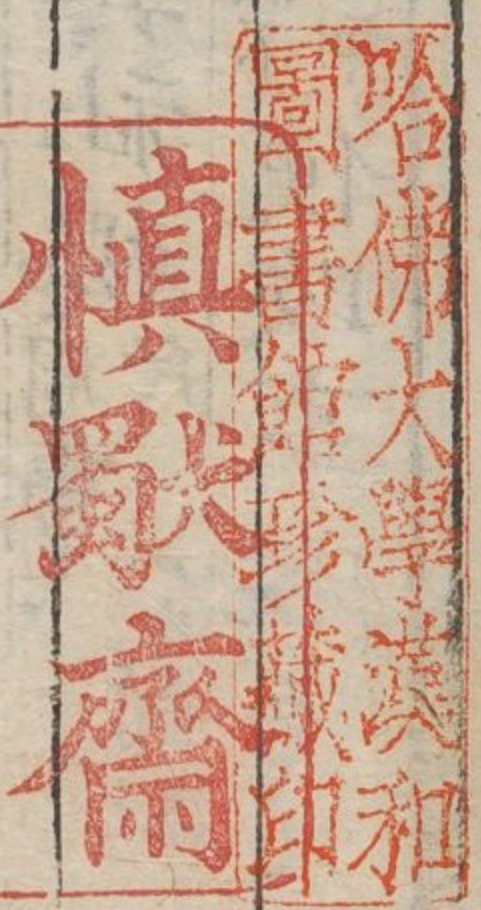 哈佛大學漢和
圖書館珍藏印
慎獨齋